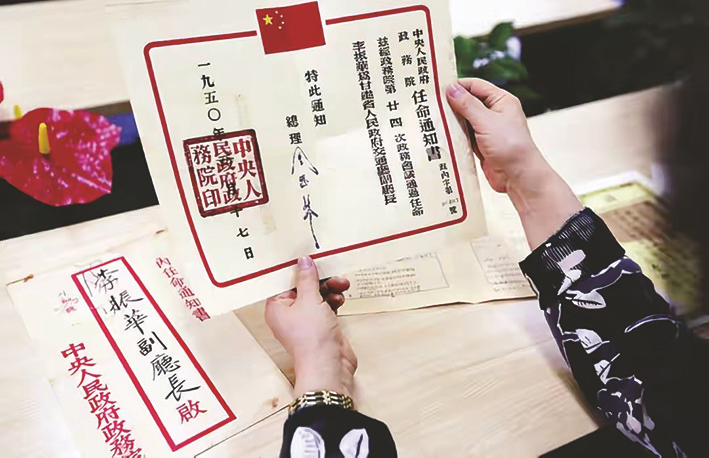 中央人民政府
政務院
任命通知書
政內字第 號
茲經政務院第廿四次政務會議通過任命
李振華爲甘肅省人民政府交通廳副廳長
特此通知
總理 周恩來
一九五〇年 月十七日
中央人
民政府政
務院印
內任命通知書
李振華副廳長啟
中央人民政府政務院